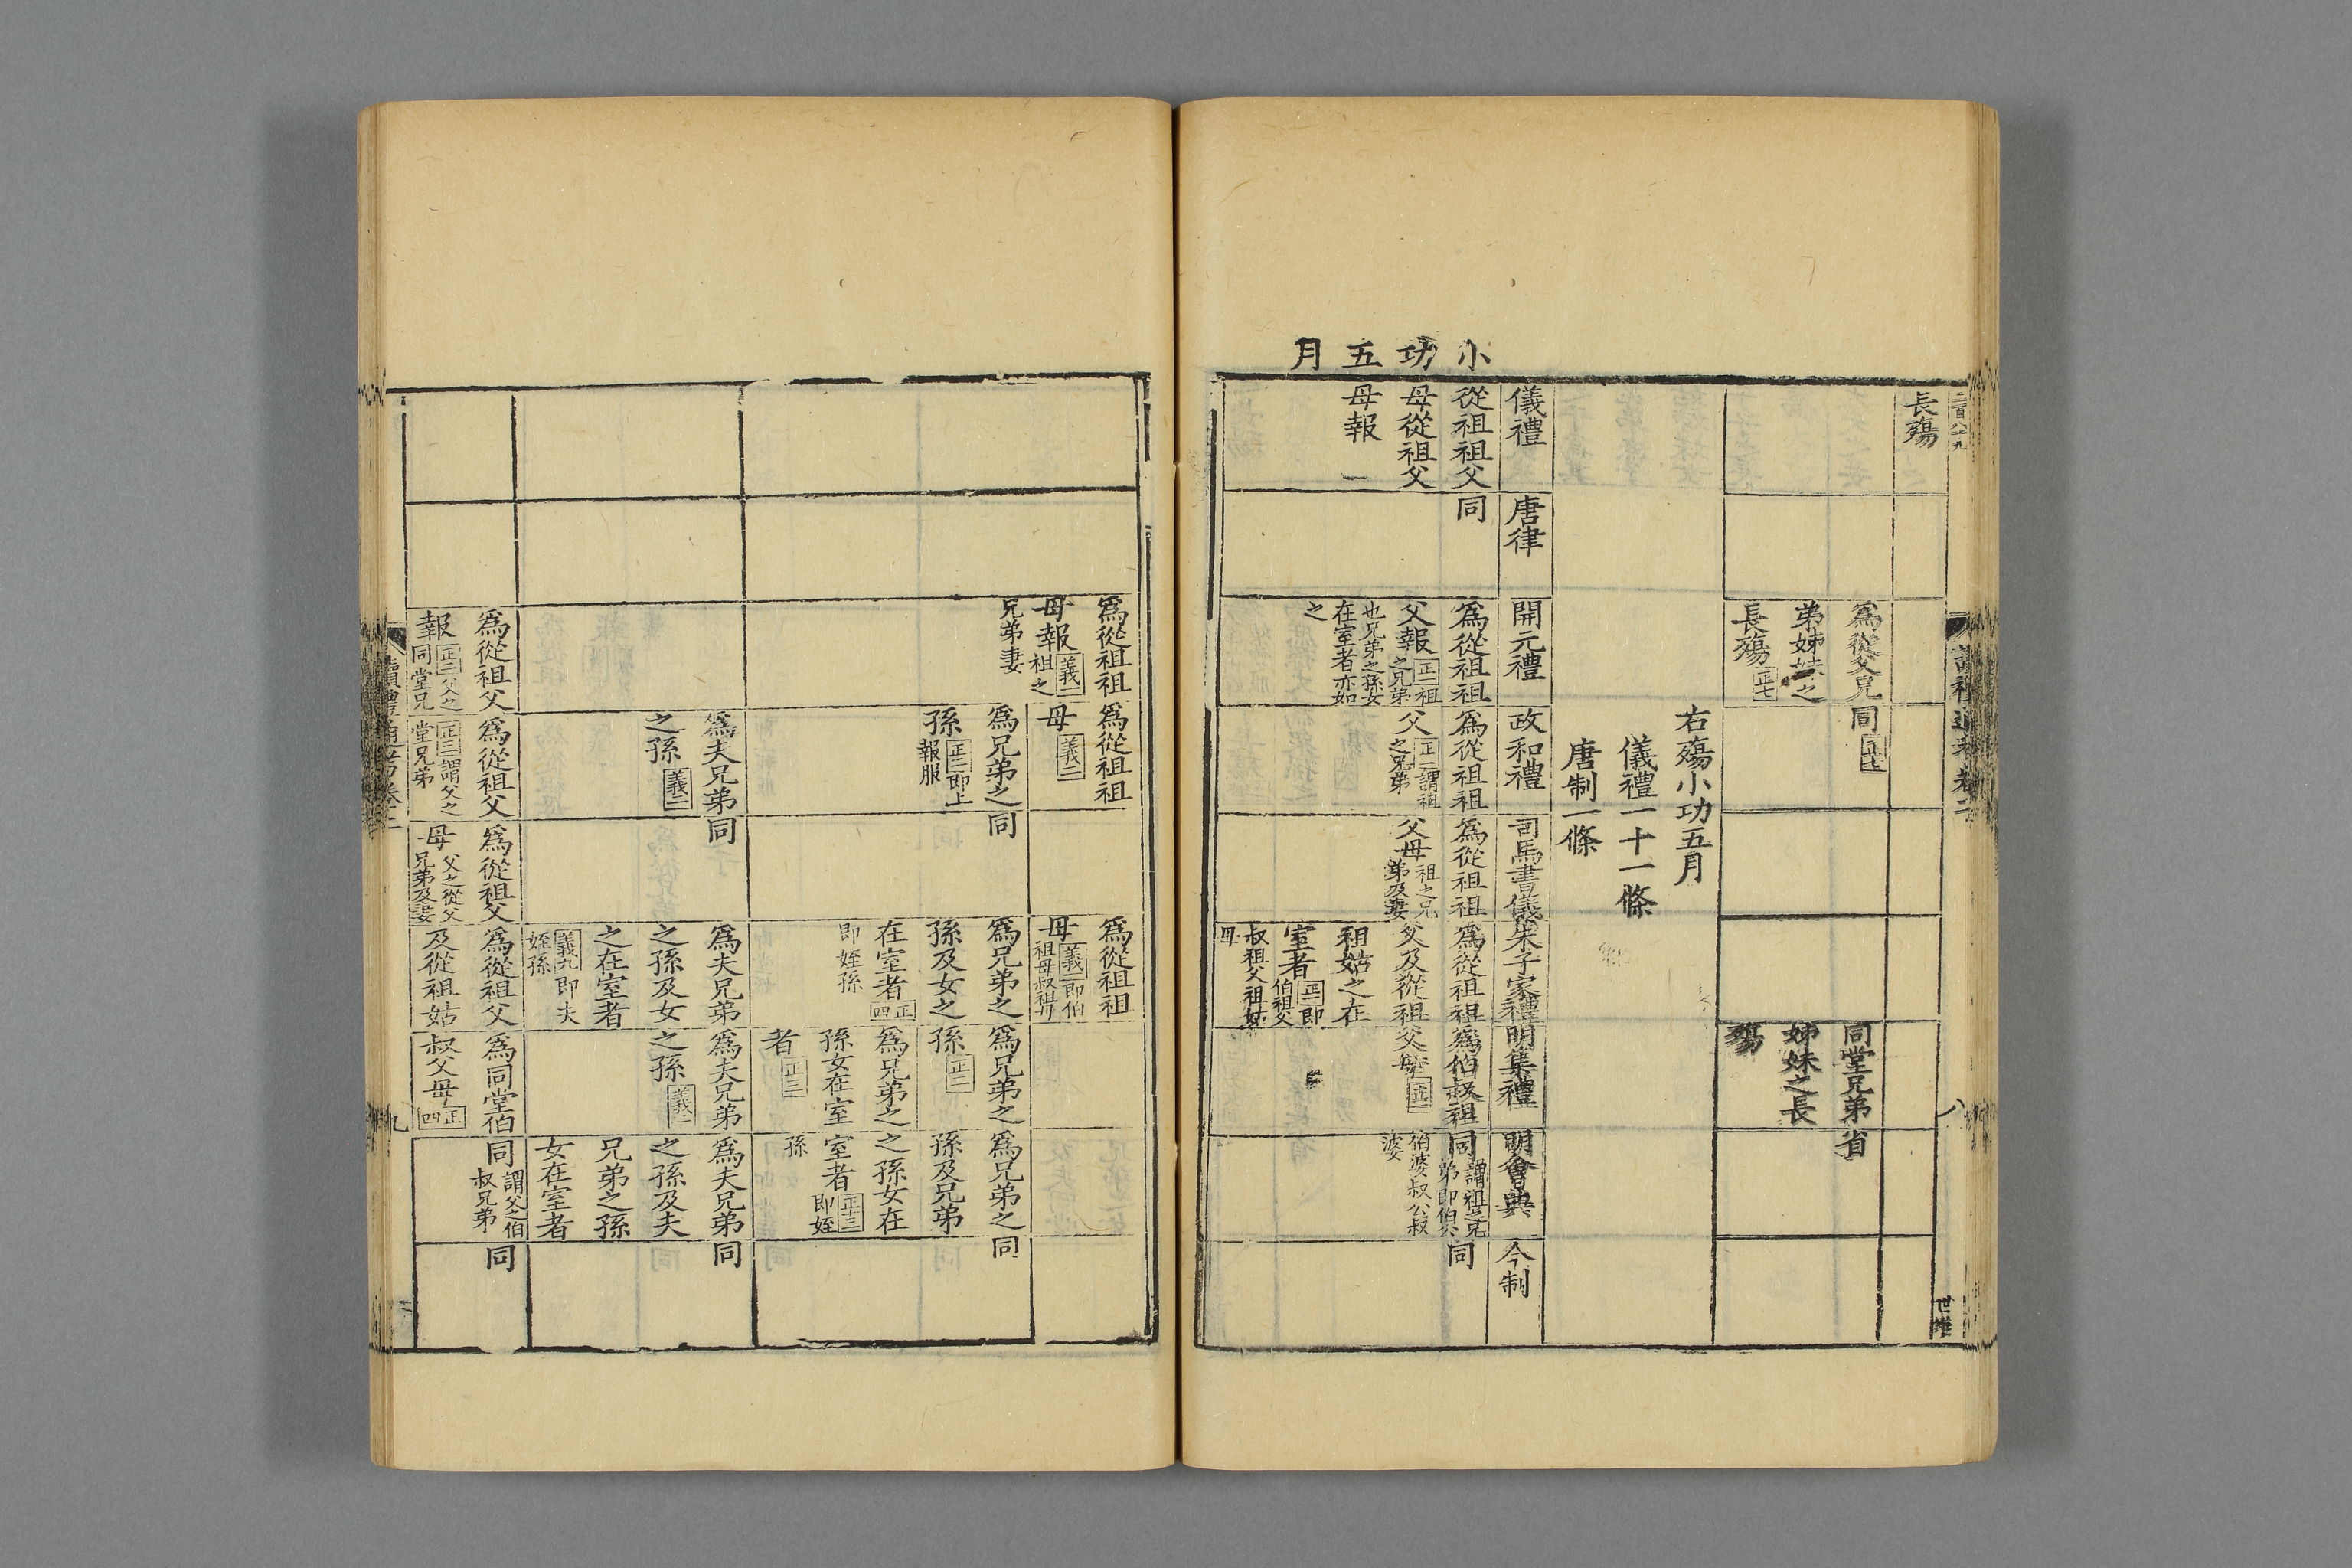 二百八十九
讀禮通考卷二
八
世雄
長殤
為從父兄
弟姊妹之
長殤正七
同正七
同堂兄弟
姊妹之長
殤
省
右殤小功五月
儀禮一十一條
唐制一條
小功五月
儀禮
唐律
開元禮
政和禮
司馬書儀
朱子家禮
明集禮
明會典
今制
從祖祖父
母從祖父
母報
同
為從祖祖
父報正二祖
之兄弟
也兄弟之孫女
在室者亦如
之
為從祖祖
父正二謂祖
之兄弟
為從祖祖
父母祖之兄
弟及妻
為從祖祖
父及從祖
祖姑之在
室者正二即
伯祖父
叔祖父祖姑
為伯叔祖
父母正二
同謂祖之兄
弟即伯公
伯婆叔公叔
婆
同
為從祖祖
母報義一
祖之
兄弟妻
為從祖祖
母義二
為從祖祖
母義一即伯
祖母叔祖母
為兄弟之
孫正三即上
報服
同
為兄弟之
孫及女之
在室者正四
即姪孫
為兄弟之
孫正二
為兄弟之
孫女在室
者正三
為兄弟之
孫及兄弟
之孫女在
室者正三
即姪
孫
同
為夫兄弟
之孫義二
同
為夫兄弟
之孫及女
之在室者
義九即夫
姪孫
為夫兄弟
之孫義二
為夫兄弟
之孫及夫
兄弟之孫
女在室者
同
為從祖父
報正二父之
同堂兄
為從祖父
正三謂父之
堂兄弟
為從祖父
母父之從父
兄弟及妻
為從祖父
及從祖姑
為同堂伯
叔父母正四
同謂父之伯
叔兄弟
同
讀禮通考卷二
九